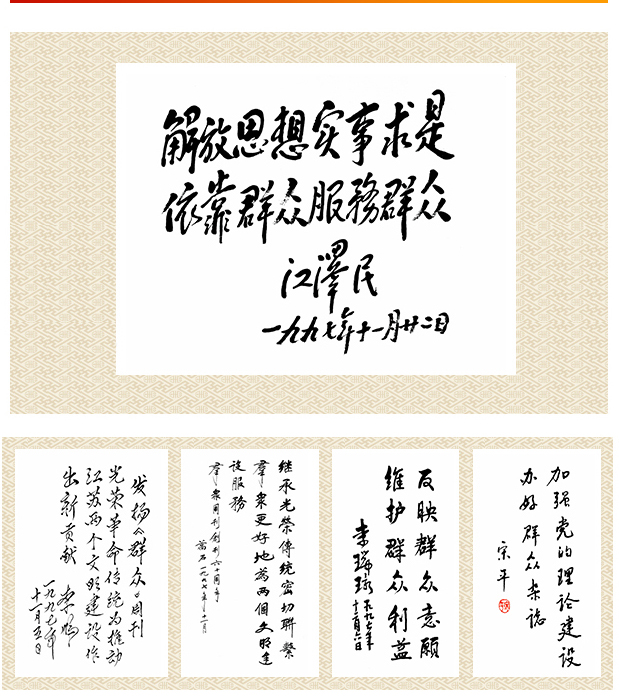 解放思想实事求是
依靠群众服務群众
江澤民
一九九七年十一月廿二日
发扬《群众》周刊
光荣革命传统为推动
江苏两个文明建设作
出新贡献
李鹏
一九九七年
十一月五日
继承光榮傳統密切聯繫
羣衆更好地為兩個文明建
设服務
羣衆周刊创刊六十周年
一九九七年十一月
反映群众意願
维护群众利益
李瑞环
一九九七年
加强党的理论建设
办好群众杂志
宋平